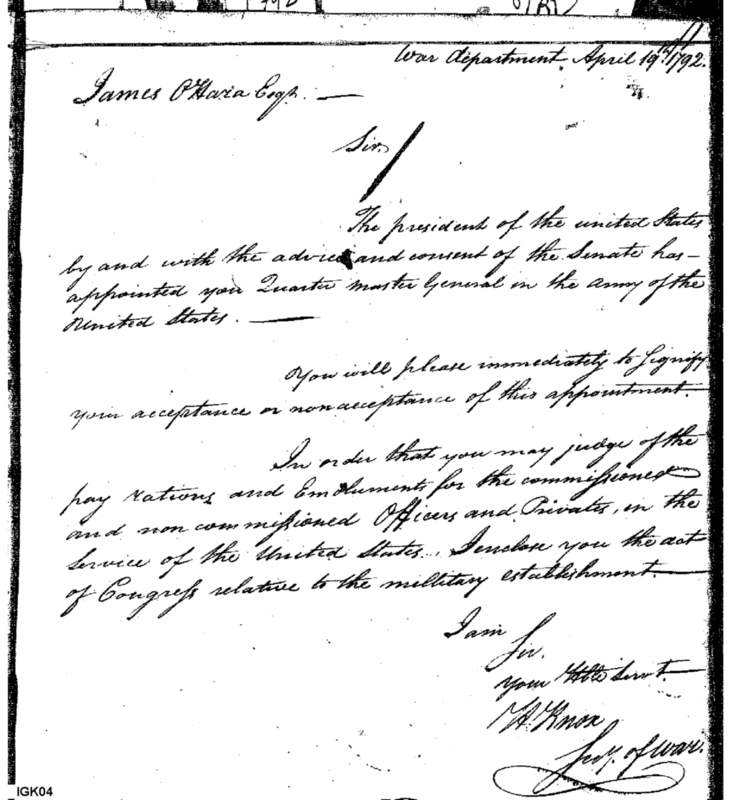 War department April 19th 1792.
James O'Hara Esqr. —
Sir,
The president of the united States
by and with the advice and consent of the Senate has—
appointed you Quarter Master General in the army of the
United States. —
You will please immediately to Signify
your acceptance or nonacceptance of this appointment.
In order that you may judge of the
pay rations and Emoluments for the commissioned
and non commissioned Officers and Privates, in the
Service of the United States. I enclose you the act
of Congress relative to the military establishment. —
I am Sir.
your Hble Servt.
H Knox
Secy. of War.
IGK04